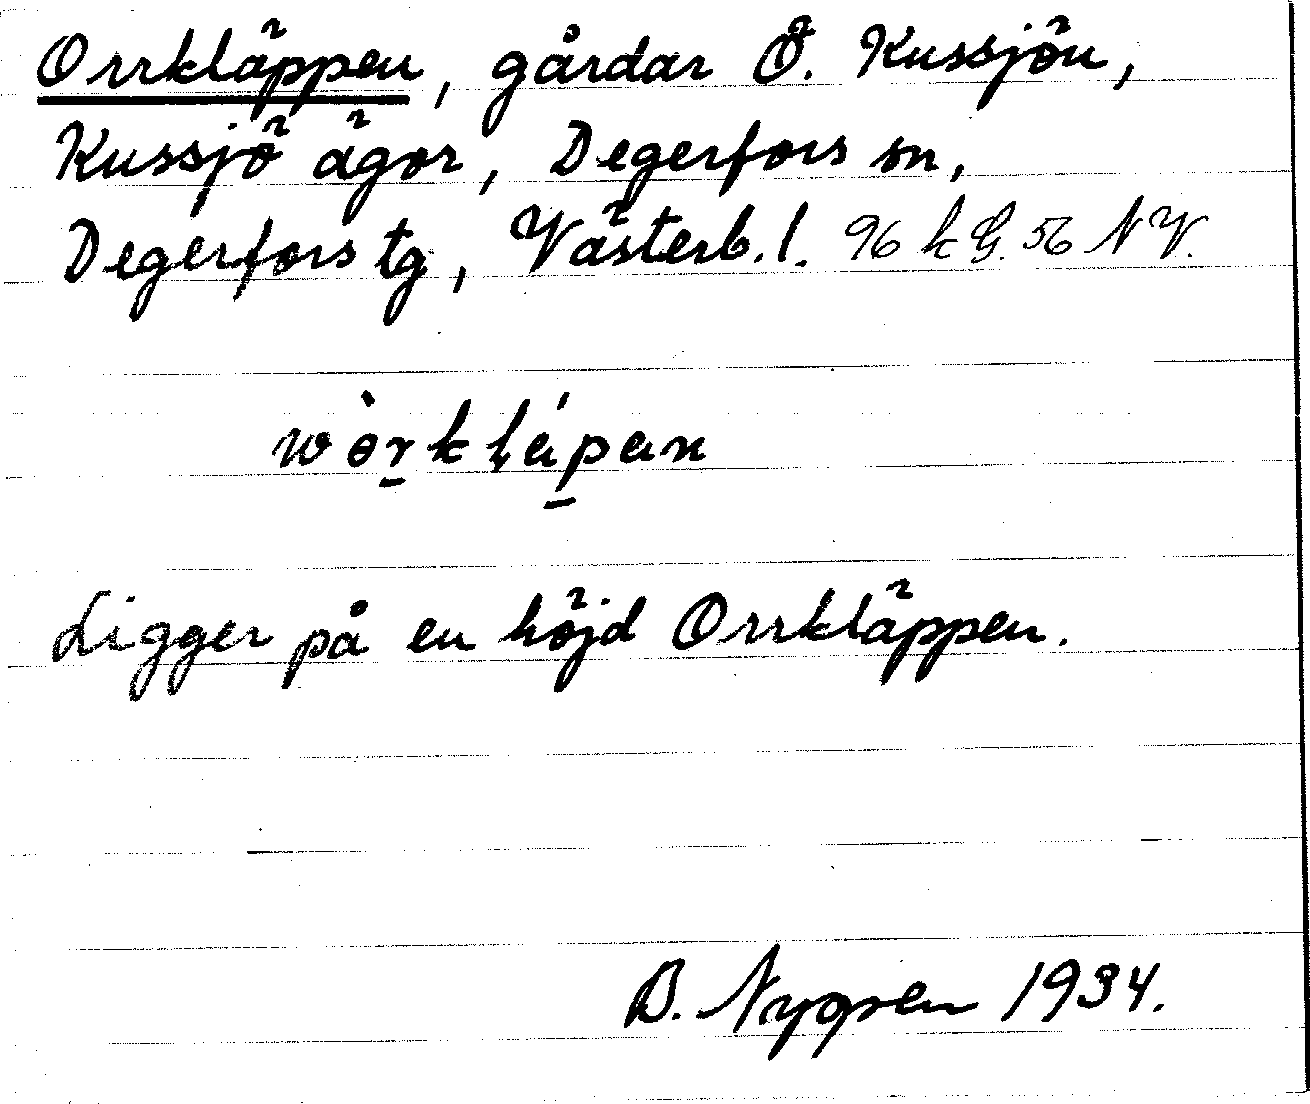 Orrkläppen, gårdar Ö. Kussjön,
Kussjö ägor, Degerfors sn,
Degerfors tg, Västerb. l. 96 k G. 56 NV.
wòrkłápen
Ligger på en höjd Orrkläppen.
B. Nygren 1934.